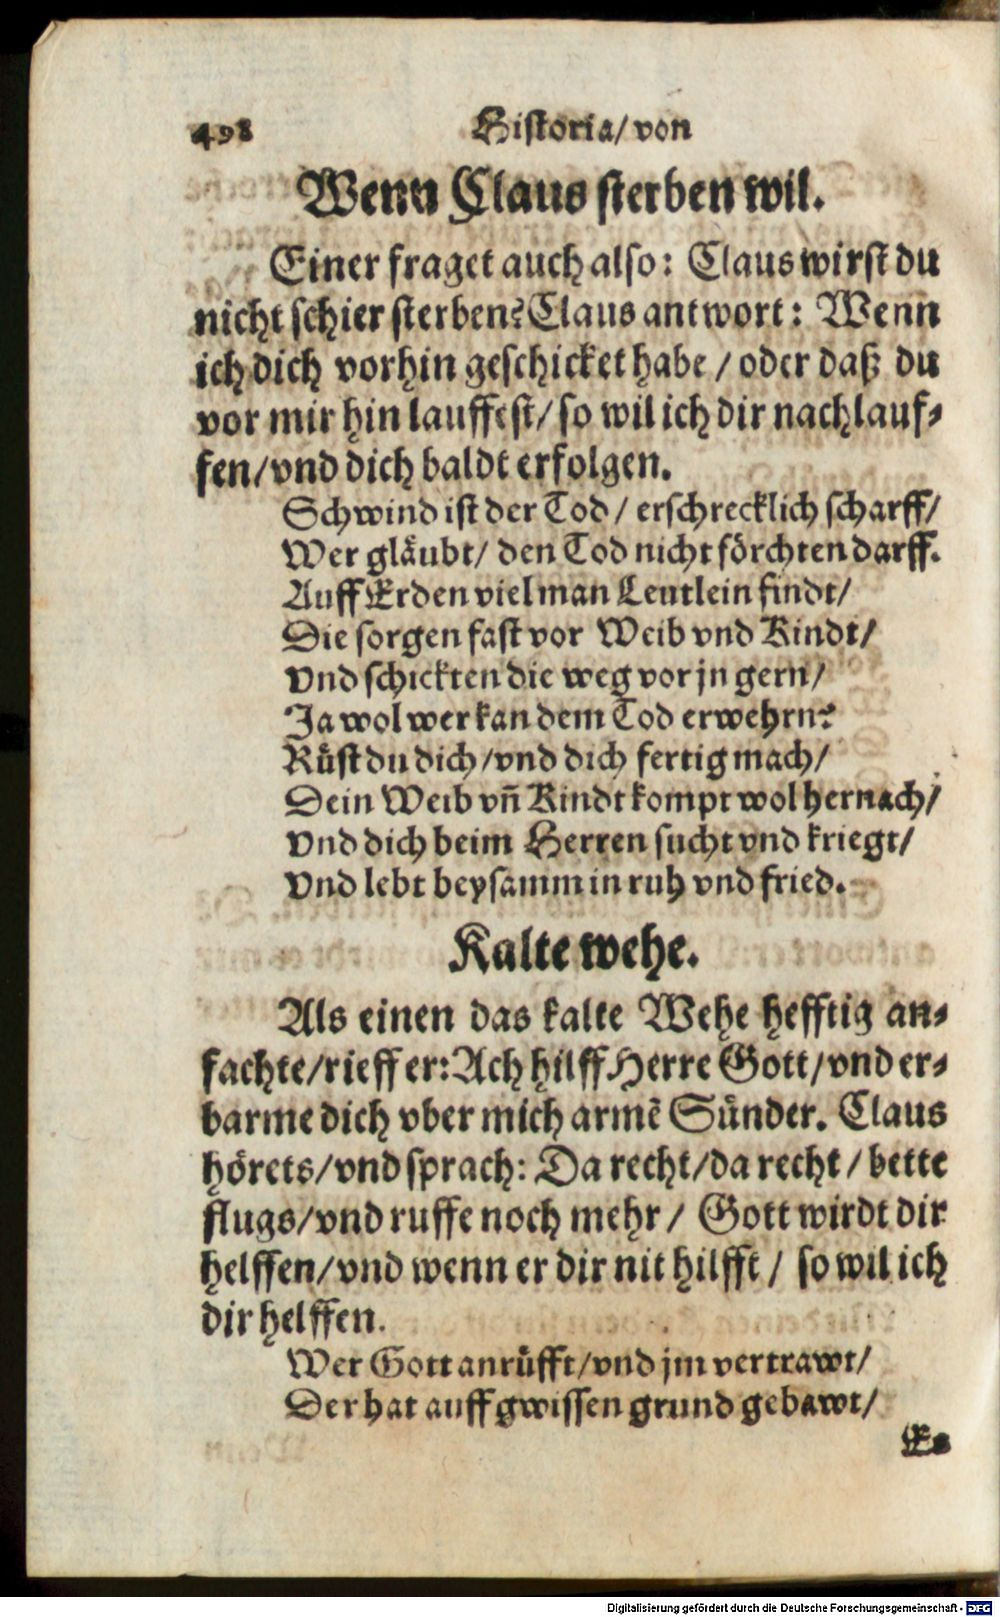 498 Historia/ von
Wenn Claus sterben wil.
Einer fraget auch also: Claus wirst du
nicht schier sterben? Claus antwort: Wenn
ich dich vorhin geschicket habe / oder daß du
vor mir hin lauffest/ so wil ich dir nachlauf-
fen/ vnd dich baldt erfolgen.
Schwind ist der Tod / erschrecklich scharff/
Wer gläubt/ den Tod nicht förchten darff.
Auff Erden viel man Leutlein findt/
Die sorgen fast vor Weib vnd Kindt/
Vnd schickten die weg vor jn gern/
Ja wol wer kan dem Tod erwehrn?
Rüst du dich /vnd dich fertig mach/
Dein Weib vn̄ Kindt kompt wol hernach/
Vnd dich beim Herren sucht vnd kriegt/
Vnd lebt beysamm in ruh vnd fried.
Kalte wehe.
Als einen das kalte Wehe hefftig an-
fachte/ rieff er: Ach hilff Herre Gott/ vnd er-
barme dich vber mich armē Sünder. Claus
hörets/ vnd sprach: Da recht/ da recht / bette
flugs/ vnd ruffe noch mehr / Gott wirdt dir
helffen/ vnd wenn er dir nit hilfft / so wil ich
dir helffen.
Wer Gott anrüfft/ vnd jm vertrawt/
Der hat auff gwissen grund gebawt/
Es
Digitalisierung gefördert durch die Deutsche Forschungsgemeinschaft - DFG